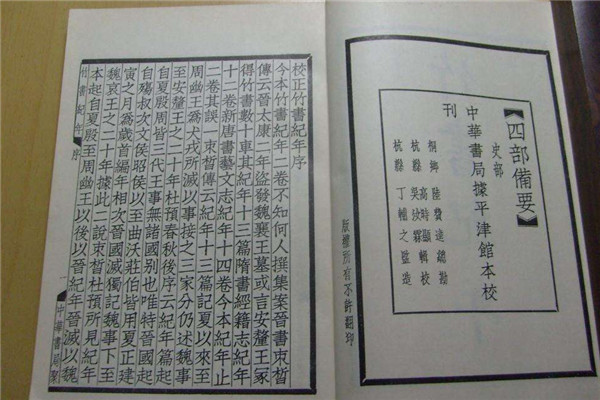 【四部備要】
史部
中華書局據平津館本校
刊
桐鄉 陸費逵總勘
杭縣 高時顯輯校
吳汝霖
杭縣 丁輔之監造
版權所有不許翻印
校正竹書紀年序
今本竹書紀年二卷不知何人撰集案晉書束皙
傳云晉太康二年盜發魏襄王墓或言安釐王冢
得竹書數十車其紀年十三篇隋書經籍志紀年
十二卷新唐書藝文志紀年十四卷今本紀年止
二卷其誤束皙傳云紀年十三篇記夏以來至
周幽王爲犬戎所滅以事接之三家分仍述魏事
至安釐王之二十年杜預春秋後序云紀年篇起
自夏殷周皆三代王事無諸國別也唯特晉國起
自殤叔次文侯昭侯以至曲沃莊伯皆用夏正建
寅之月爲歲首編年相次晉國滅獨記魏事下至
魏哀王之二十年據此二說束皙杜預所見紀年
本起自夏殷至周幽王以後以晉紀年晉滅以魏
竹書紀年 序 一 中華書局聚